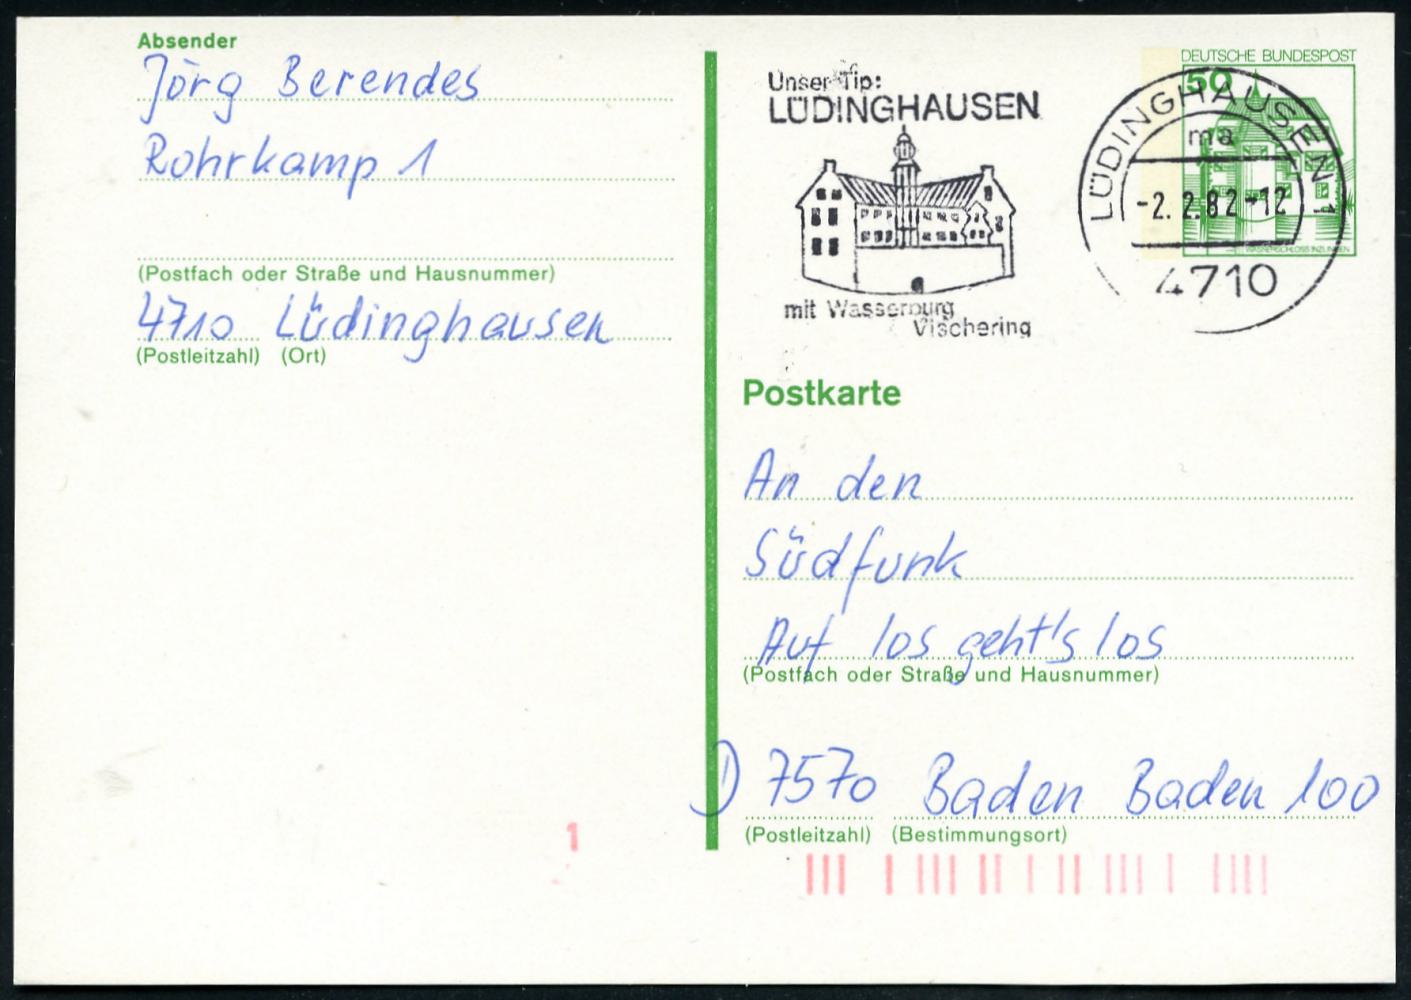 Absender
Jörg Berendes
Rohrkamp 1
(Postfach oder Straße und Hausnummer)
4710 Lüdinghausen
(Postleitzahl) (Ort)
Unser Tip:
LÜDINGHAUSEN
mit Wasserburg
Vischering
DEUTSCHE BUNDESPOST
50
WASSERSCHLOSS INZLINGEN
LÜDINGHAUSEN 1
ma
-2.2.82-12
4710
Postkarte
An den
Südfunk
Auf los geht's los
(Postfach oder Straße und Hausnummer)
D 7570 Baden Baden 100
(Postleitzahl) (Bestimmungsort)
1